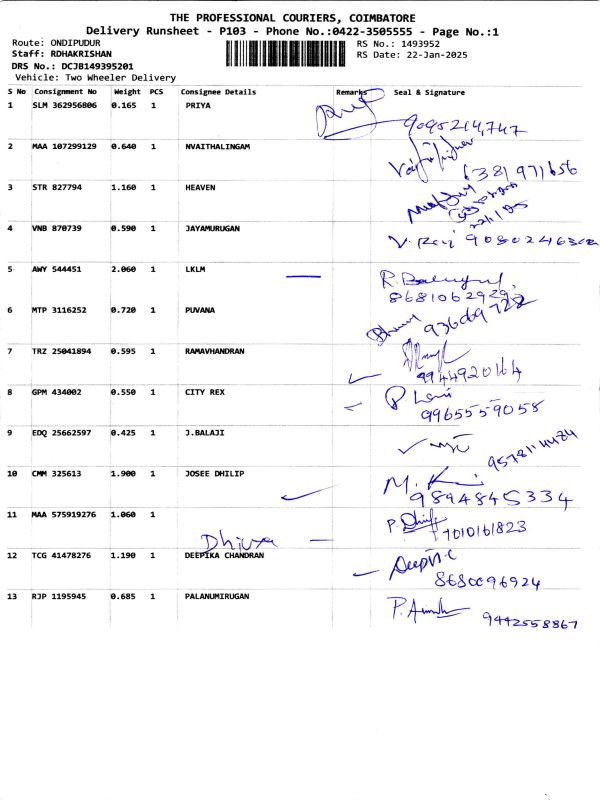 THE PROFESSIONAL COURIERS, COIMBATORE
Delivery Runsheet - P103 - Phone No.:0422-3505555 - Page No.:1
Route: ONDIPUDUR RS No.: 1493952
Staff: RDHAKRISHAN RS Date: 22-Jan-2025
DRS No.: DCJB149395201
Vehicle: Two Wheeler Delivery
S No Consignment No Weight PCS Consignee Details Remarks Seal & Signature
1 SLM 362956806 0.165 1 PRIYA
9095214747
2 MAA 107299129 0.640 1 NVAITHALINGAM
6381971656
3 STR 827794 1.160 1 HEAVEN
4 VNB 870739 0.590 1 JAYAMURUGAN
V. Ravi
5 AWY 544451 2.060 1 LKLM
8681062929
6 MTP 3116252 0.720 1 PUVANA
7 TRZ 25041894 0.595 1 RAMAVHANDRAN
9944920164
8 GPM 434002 0.550 1 CITY REX
9965559058
9 EDQ 25662597 0.425 1 J.BALAJI
10 CMM 325613 1.900 1 JOSEE DHILIP
9894845334
11 MAA 575919276 1.060 1
Dhivya 7010161823
12 TCG 41478276 1.190 1 DEEPIKA CHANDRAN
Deepti.c
8680096924
13 RJP 1195945 0.685 1 PALANUMIRUGAN
9442558867